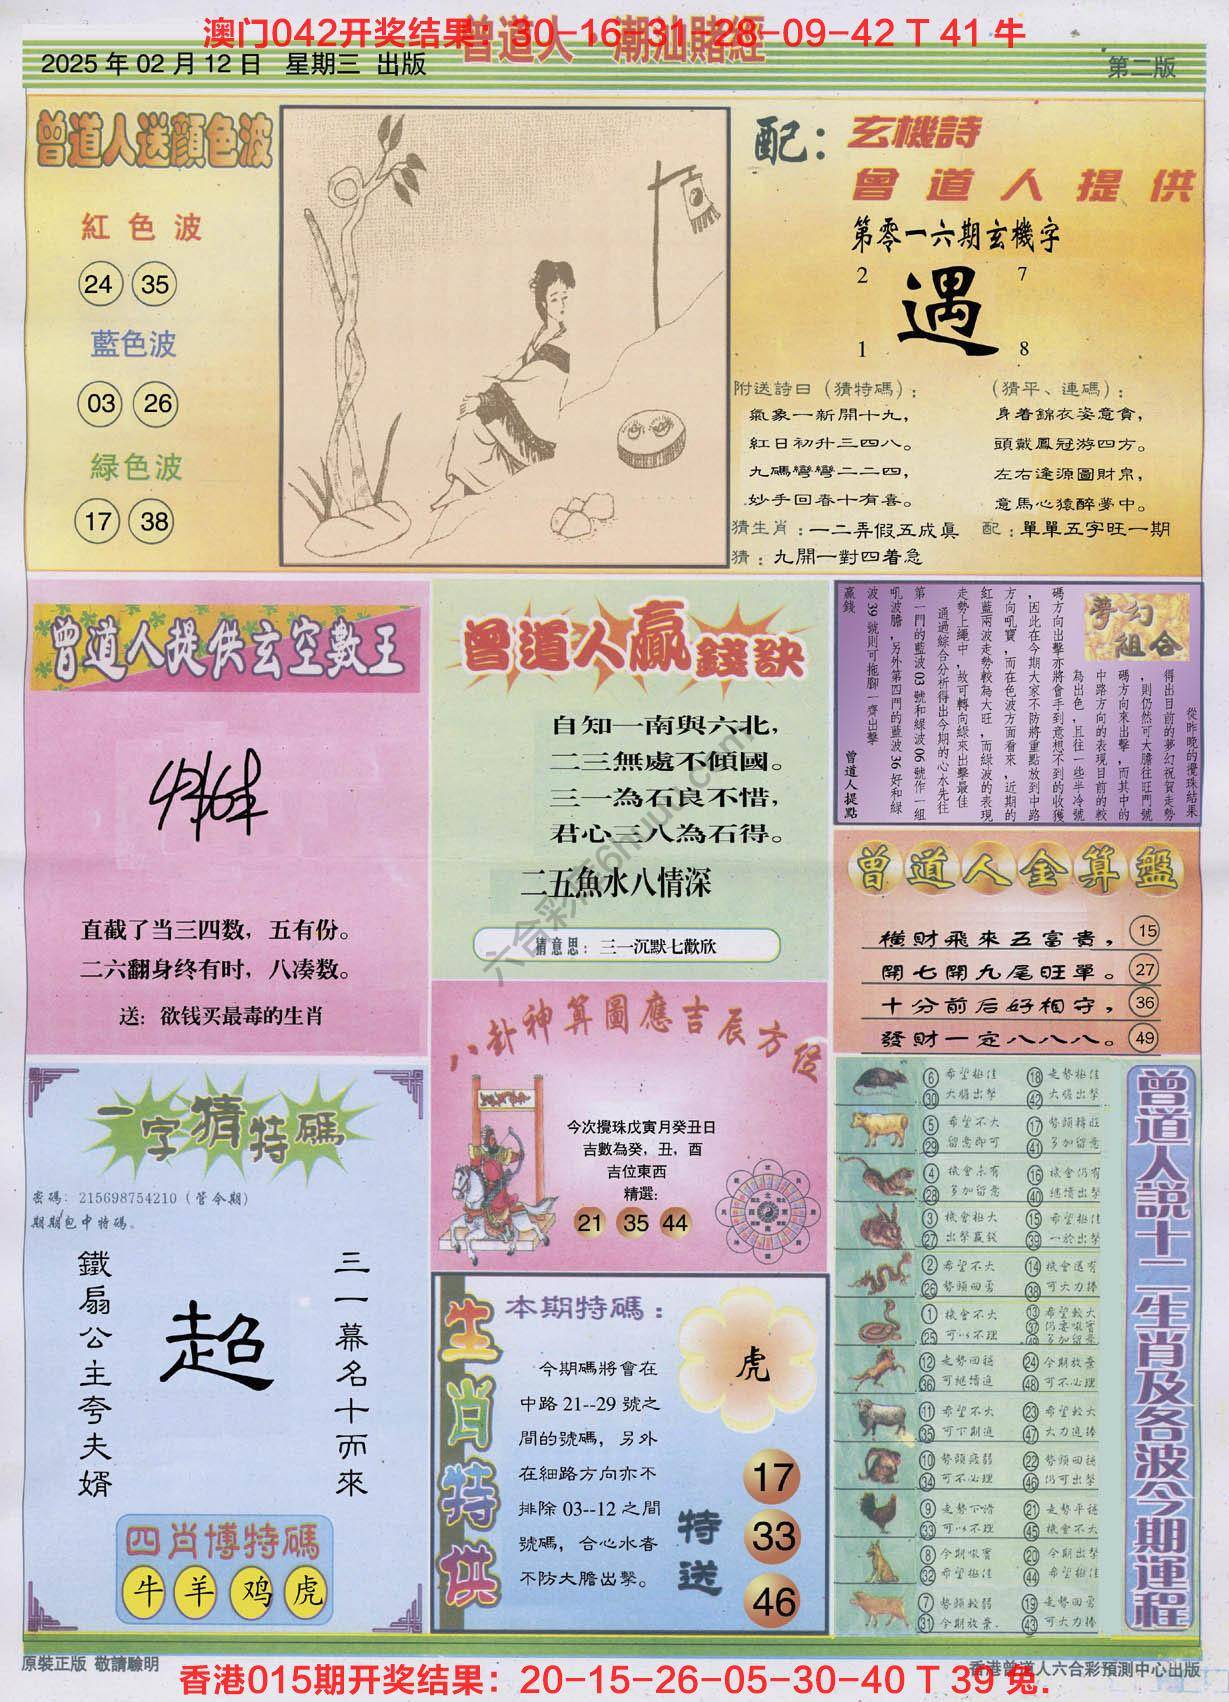 澳门042开奖结果：30-16-31-28-09-42 T 41 牛
曾道人 潮汕賭經
2025 年 02 月 12 日 星期三 出版
第二版
曾道人送顏色波
紅色波
24 35
藍色波
03 26
緑色波
17 38
配：玄機詩
曾道人提供
第零一六期玄機字
2 7
遇
1 8
附送詩曰（猜特碼）：
氣象一新開十九，
紅日初升三四八。
九碼彎彎二二四，
妙手回春十有喜。
（猜平、連碼）：
身着錦衣姿意貪，
頭戴鳳冠游四方。
左右逢源圖財帛，
意馬心猿醉夢中。
猜生肖：一二弄假五成眞
配：單單五字旺一期
猜：九開一對四着急
曾道人提供玄空數王
直截了当三四数，五有份。
二六翻身终有时，八凑数。
送：欲钱买最毒的生肖
曾道人贏錢訣
自知一南與六北，
二三無處不傾國。
三一為石良不惜，
君心三八為石得。
二五魚水八情深
猜意思：三一沉默七歡欣
夢幻組合
從昨晚的攪珠結果
得出目前的夢幻祝賀走勢
，則仍然可大膽往旺門號
碼方向來出擊，而其中的
中路方向的表現目前的較
為出色，且往一些半冷號
碼方向出擊亦將會手到意想不到的收獲
，因此在今期大家不防將重點放到中路
方向吼寶，而在色波方面看來，近期的
紅藍兩波走勢較為大旺，而綠波的表現
走勢上繩中，故可轉向綠來出擊最佳
通過綜合分析得出今期的心水先往
第一門的藍波03號和綠波06號作一組
吼波膽，另外第四門的藍波36好和綠
波39號則可拖腳一齊出擊
贏錢
曾道人提點
曾道人金算盤
橫財飛來五富貴， 15
開七開九尾旺單。 27
十分前后好相守， 36
發財一定八八八。 49
八卦神算圖應吉辰方位
今次攪珠戊寅月癸丑日
吉數為癸，丑，酉
吉位東西
精選：
21 35 44
一字猜特碼
密碼：215698754210（管今期）
期期包中特碼。
三一幕名十而來
超
鐵扇公主夸夫婿
四肖博特碼
牛 羊 鸡 虎
生肖特供
本期特碼：
虎
今期碼將會在
中路 21--29 號之
間的號碼，另外
在細路方向亦不
排除 03--12 之間
號碼，合心水者
不防大膽出擊。
特送
17
33
46
曾道人説十二生肖及各波今期運程
6 希望極佳 18 走勢極佳
30 大膽出擊 42 大膽出擊
5 希望不大 17 勢頭轉旺
29 留意即可 41 多加留意
4 機會未有 16 機會仍有
28 多加留意 40 繼續出擊
3 機會極大 15 希望極佳
27 出擊贏錢 39 一於出擊
2 希望不大 14 機會還有
26 勢頭回勇 38 可大力捧
1 機會不大 13 希望較大
37 仍要吼實
25 可以不理 49 多加留意
12 走勢回穩 24 今期放棄
36 可繼續進 48 可不必理
11 希望不大 23 希望較大
35 可下期進 47 大力進捧
10 勢頭疲弱 22 勢頭回穩
34 可不必理 46 仍可出擊
9 走勢下滑 21 走勢平穩
33 可以不理 45 機會不大
8 今期吼實 20 今期出擊
32 希望極佳 44 希望極佳
7 勢頭較弱 19 走勢回勇
31 今期放棄. 43 可大力捧
六合彩库6huuu.com
原裝正版 敬請驗明
香港曾道人六合彩預測中心出版
香港015期开奖结果：20-15-26-05-30-40 T 39 兔.